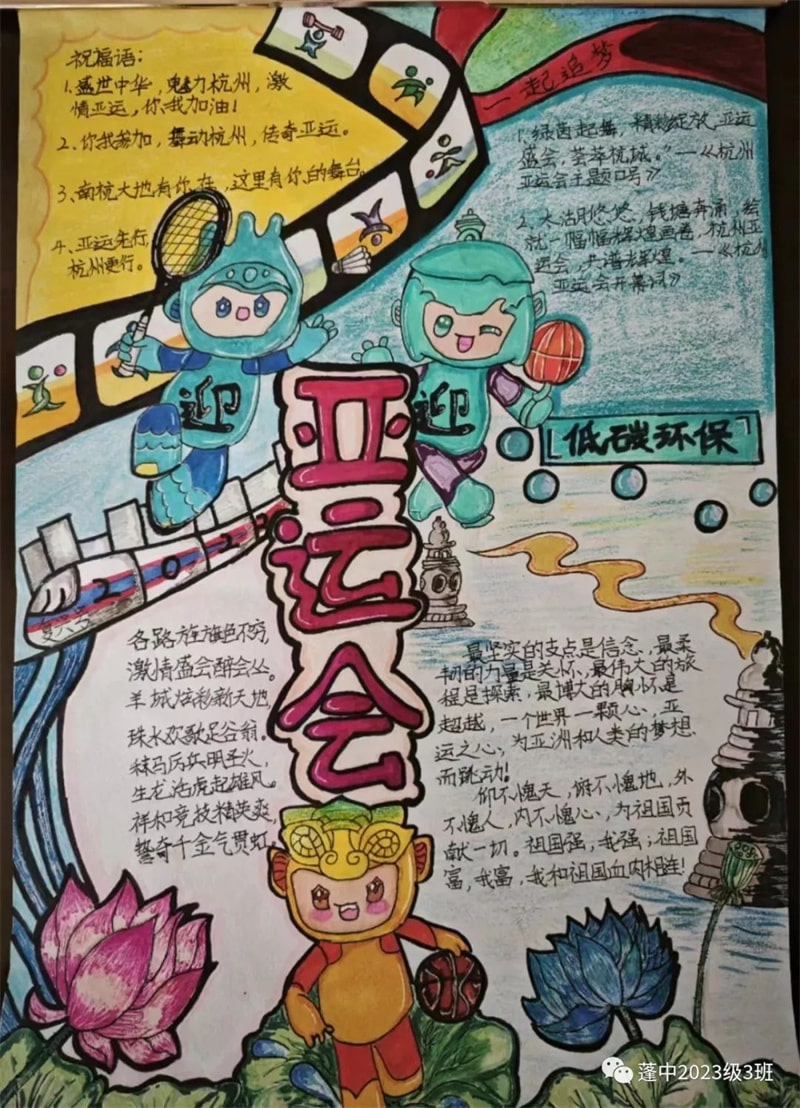 祝福语:
1.盛世中华,魅力杭州,激
情亚运,你我加油!
2、你我参加,舞动杭州,传奇亚运。
3、南杭大地有你在,这里有你的舞台。
4、亚运先行,
杭州更行。
一起追梦
1、绿茵起舞,精彩绽放,亚运
盛会,荟萃杭城。”—《杭州
亚运会主题口号》
2、太湖悠悠、钱塘奔涌,绘
就一幅幅辉煌画卷,杭州亚
运会,共谱辉煌。—《杭州
亚运会开幕词》
迎
迎
「低碳环保」
亚运会
2022
复兴号
各路旌旗色不穷,
激情盛会醉会丛。
羊城炫彩新天地,
珠水欢歌足谷翁。
秣马厉兵明圣火,
生龙活虎起雄风。
祥和竞技精英爽,
整奇千金气贯虹
最坚实的支点是信念,最柔
韧的力量是关怀,最伟大的旅
程是探索,最博大的胸怀是
超越,一个世界一颗心,亚
运之心,为亚洲和人类的梦想
而跳动!
仰不愧天,俯不愧地,外
不愧人,内不愧心,为祖国贡
献一切。祖国强,我强;祖国
富,我富,我和祖国血肉相连!
蓬中2023级3班